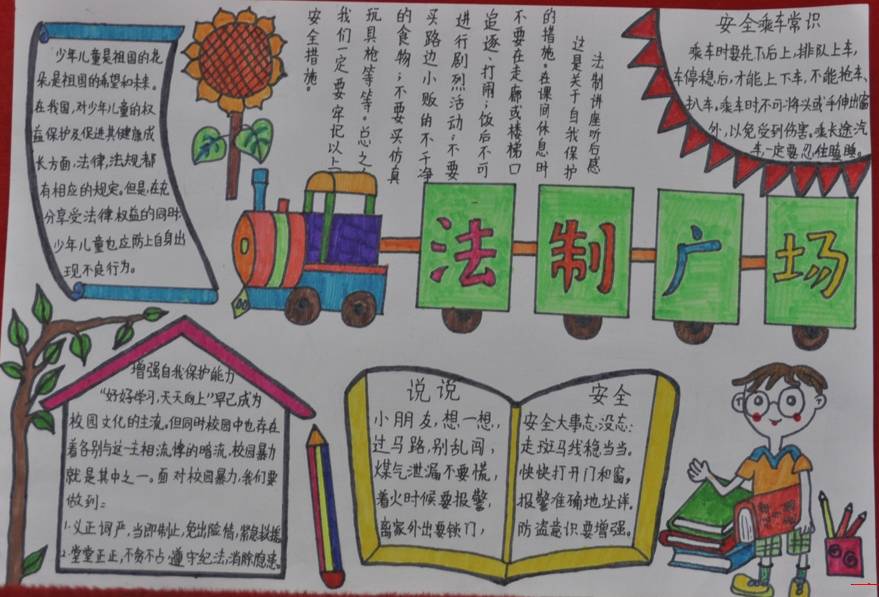 少年儿童是祖国的花
朵,是祖国的希望和未来。
在我国,对少年儿童的权
益保护及促进其健康成
长方面,法律,法规都
有相应的规定。但是,在充
分享受法律权益的同时
少年儿童也应防上自身出
现不良行为。
法制讲座听后感
这是关于自我保护
的措施。在课间休息时
不要在走廊或楼梯口
追逐、打闹;饭后不可
进行剧烈活动;不要
买路边小贩的不干净
的食物;不要买仿真
玩具枪等等。总之,
我们一定要牢记以上
安全措施。
安全乘车常识
乘车时要先下后上,排队上车,
车停稳后,才能上下车,不能抢车、
扒车。乘车时不可将头或手伸出窗
外,以免受到伤害。乘长途汽
车一定要忍住瞌睡。
法制广场
增强自我保护能力
“好好学习,天天向上”早已成为
校园文化的主流。但同时校园中也存在
着各别与这一主相流悖的暗流,校园暴力
就是其中之一。面对校园暴力,我们要
做到:
1.义正词严,当即制止,免出险情,紧急救援
2.堂堂正正,不贪不占,遵守纪法,消除隐患。
说说
小朋友,想一想,
过马路,别乱闯,
煤气泄漏不要慌,
着火时候要报警,
离家外出要锁门,
安全
安全大事忘没忘:
走斑马线稳当当。
快快打开门和窗,
报警准确地址详。
防盗意识要增强。